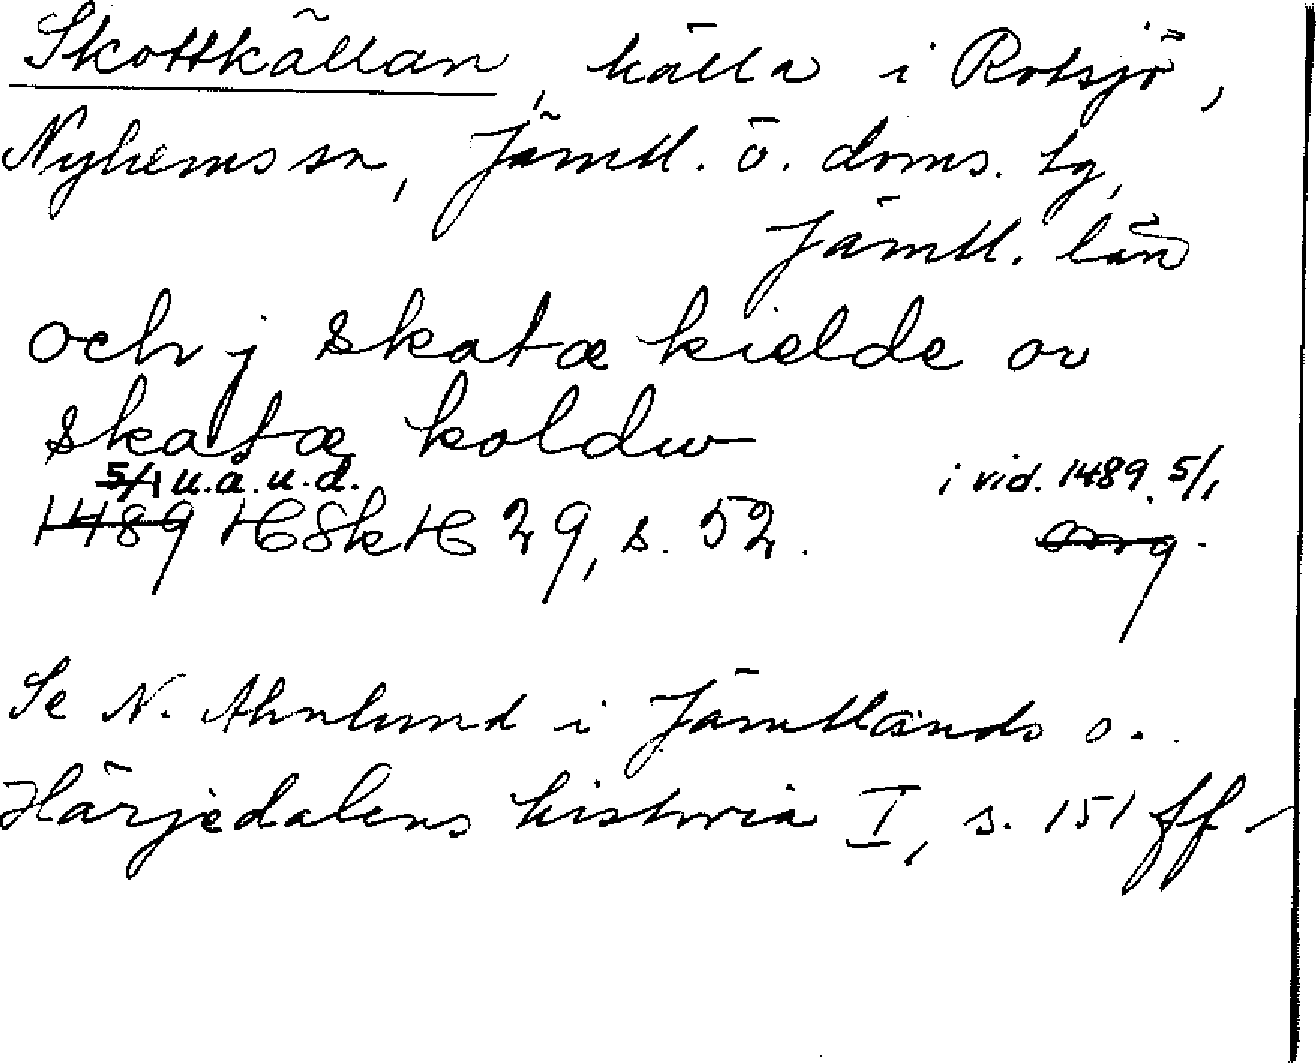 Skottkällan, källa i Rotsjö,
Nyhems sn, Jämtl. ö. doms. tg,
Jämtl. län
och j skatæ kielde ov
skatæ koldw
5/1 u.å.u.d. i vid. 1489 5/1
1489 HSkH 29, s. 52. Avg.
Se N. Ahnlund i Jämtlands o.
Härjedalens historia I, s. 151 ff